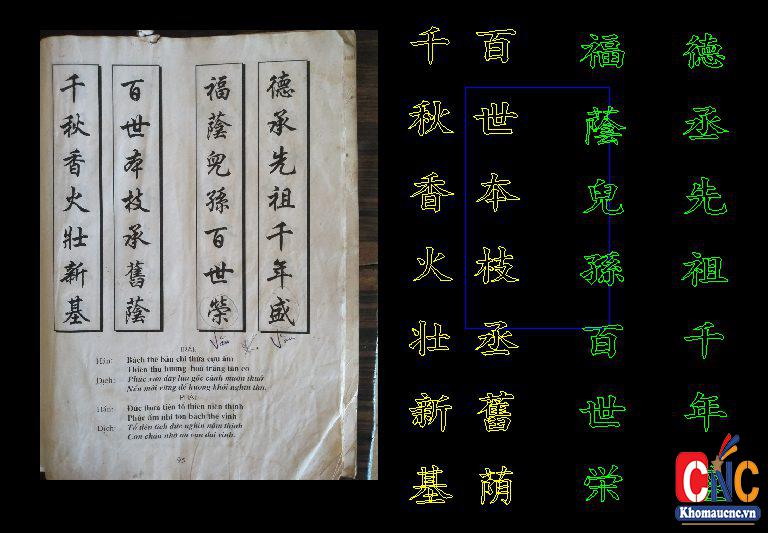 德承先祖千年盛
福蔭兒孫百世榮
百世本枝承舊蔭
千秋香火壯新基
Hán: Bách thế bản chi thừa cựu ấm
Thiên thu hương hoả tráng tân cơ
Dịch: Phúc xưa dày lưu gốc cành muôn thuở
Nền mới vững để hương khói nghìn thu.
Hán: Đức thừa tiên tổ thiên niên thịnh
Phúc ấm nhi tôn bách thế vinh
Dịch: Tổ tiên tích đức nghìn năm thịnh
Con cháu nhờ ơn vạn đại vinh.
95
德丞先祖千年
福蔭兒孫百世栄
百世本枝丞舊荫
千秋香火壮新基
CNC
Khomaucnc.vn